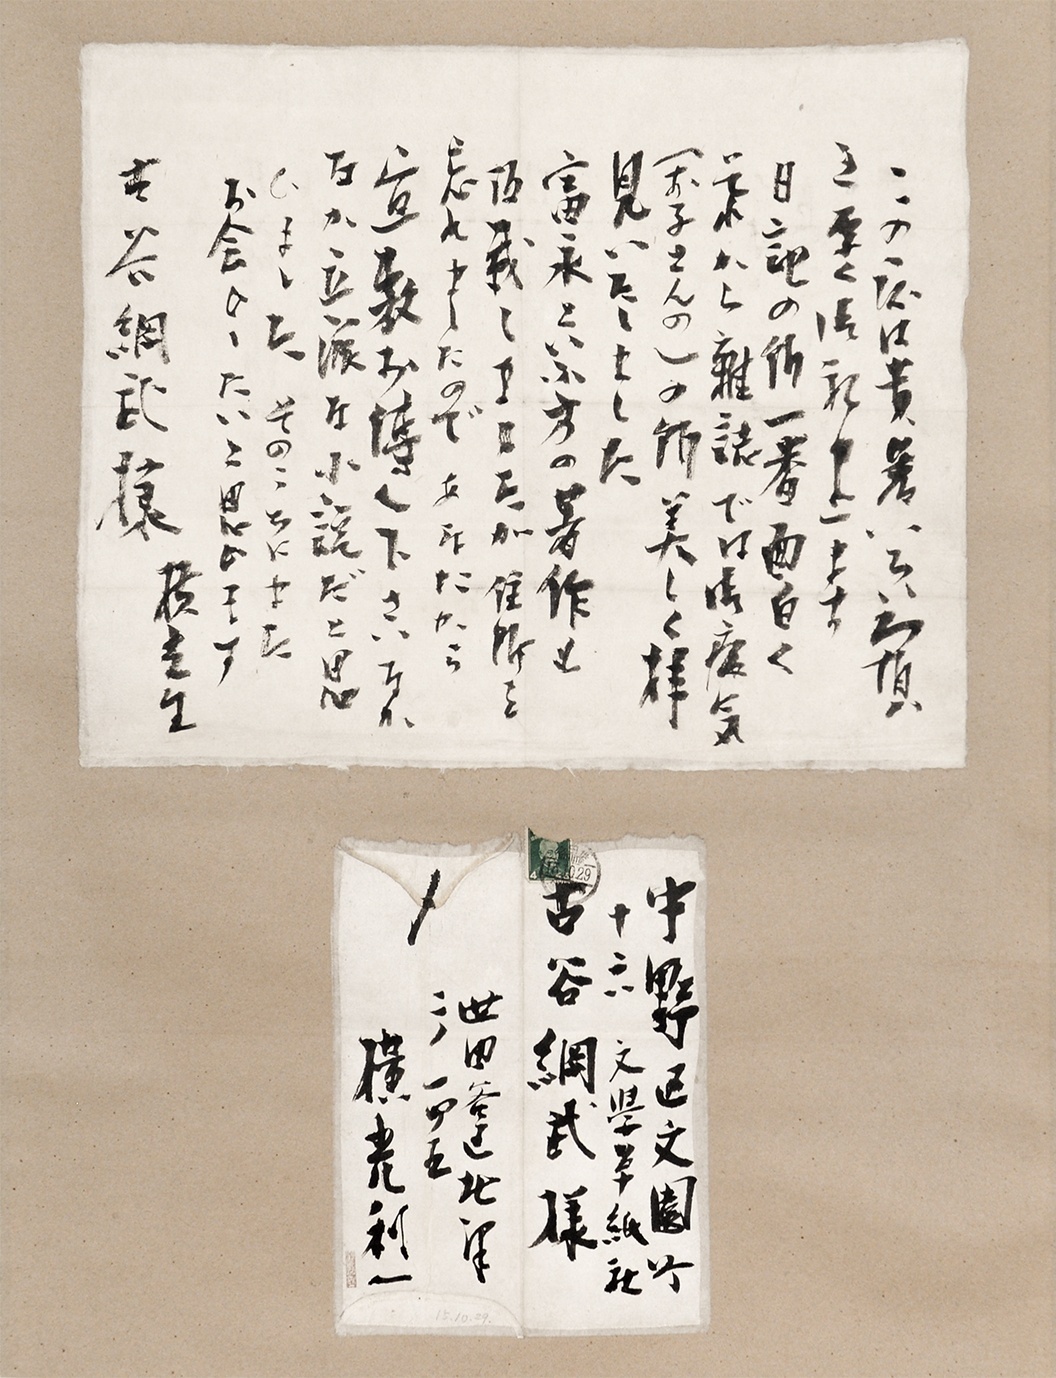 この頃は貴著いろいろ頂
き厚く御礼申上ます
日記の所一番面白く
それから雑誌では御病気
(お子さんの)の所美しく拝
見いたしました
富永といふ方の著作も
頂戴しましたが住所を
忘れましたので あなたから
宜敷お傳へ下さい なか
なか立派な小説だと思
ひました そのうちにまた
お会ひしたいと思ひます
横光生
古谷綱武様
中野区文園町
十六 文學草紙社
古谷綱武様
10.29
世田谷区北沢
二ノ一四五
横光利一
15.10.29.